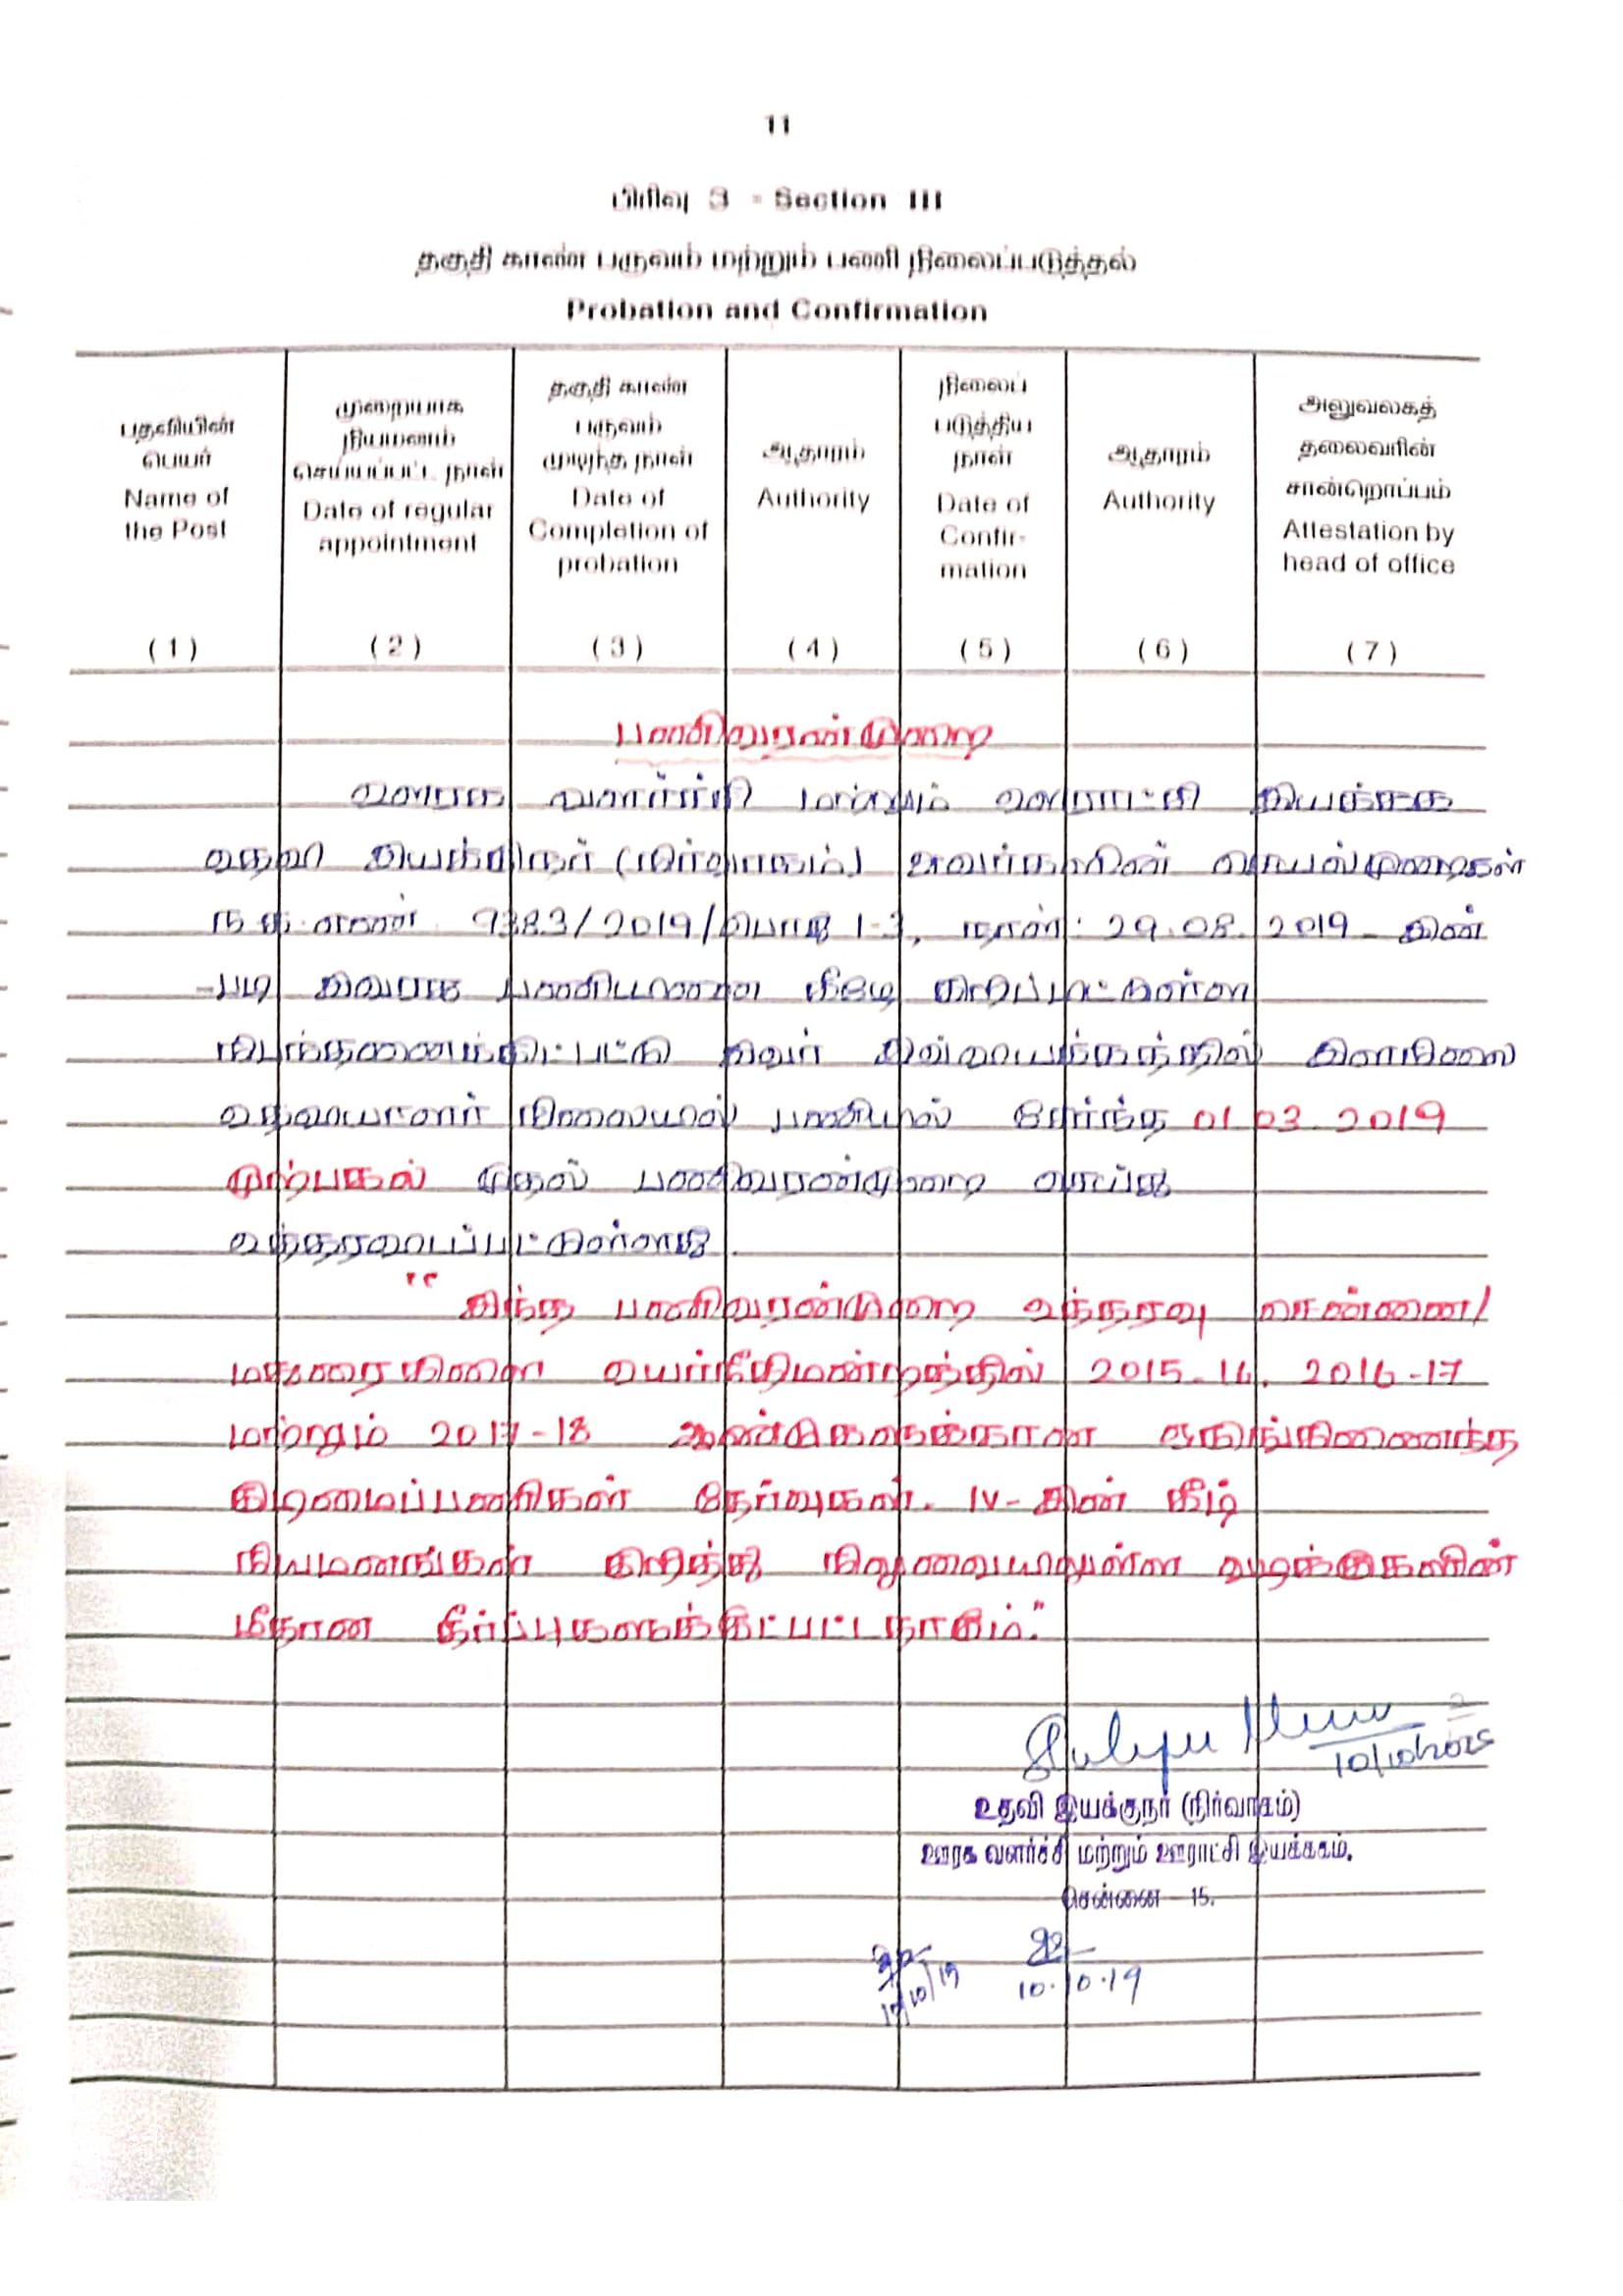 11
பிரிவு 3 - Section III
தகுதி காண் பருவம் மற்றும் பணி நிலைப்படுத்தல்
Probation and Confirmation
பதவியின் பெயர் Name of the Post
முறையாக நியமனம் செய்யப்பட்ட நாள் Date of regular appointment
தகுதி காண் பருவம் முடிந்த நாள் Date of Completion of probation
ஆதாரம் Authority
நிலைப் படுத்திய நாள் Date of Confir- mation
ஆதாரம் Authority
அலுவலகத் தலைவரின் சான்றொப்பம் Attestation by head of office
(1) (2) (3) (4) (5) (6) (7)
பணிவரன்முறை
ஊரக வளர்ச்சி மற்றும் ஊராட்சி இயக்கக
உதவி இயக்குநர் (நிர்வாகம்) அவர்களின் செயல்முறைகள்
ந.க.எண் 9383/2019/பொது 1-3, நாள்: 29.08.2019-இன்
-படி இவரது பணியினை கீழே குறிப்பிட்டுள்ள
நிபந்தனைக்குட்பட்டு இவர் இவ்வியக்கத்தில் இளநிலை
உதவியாளர் நிலையில் பணியில் சேர்ந்த 01.03.2019
முற்பகல் முதல் பணிவரன்முறை செய்து
உத்தரவிடப்பட்டுள்ளது.
"இந்த பணிவரன்முறை உத்தரவு சென்னை/
மதுரை கிளை உயர்நீதிமன்றத்தில் 2015-16, 2016-17
மற்றும் 2017-18 ஆண்டுகளுக்கான ஒருங்கிணைந்த
குடிமைப்பணிகள் தேர்வுகள்- IV-இன் கீழ்
நியமனங்கள் குறித்து நிலுவையிலுள்ள வழக்குகளின்
மீதான தீர்ப்புகளுக்குட்பட்டதாகும்."
10/10/2025
உதவி இயக்குநர் (நிர்வாகம்)
ஊரக வளர்ச்சி மற்றும் ஊராட்சி இயக்ககம்,
சென்னை - 15.
10.10.19